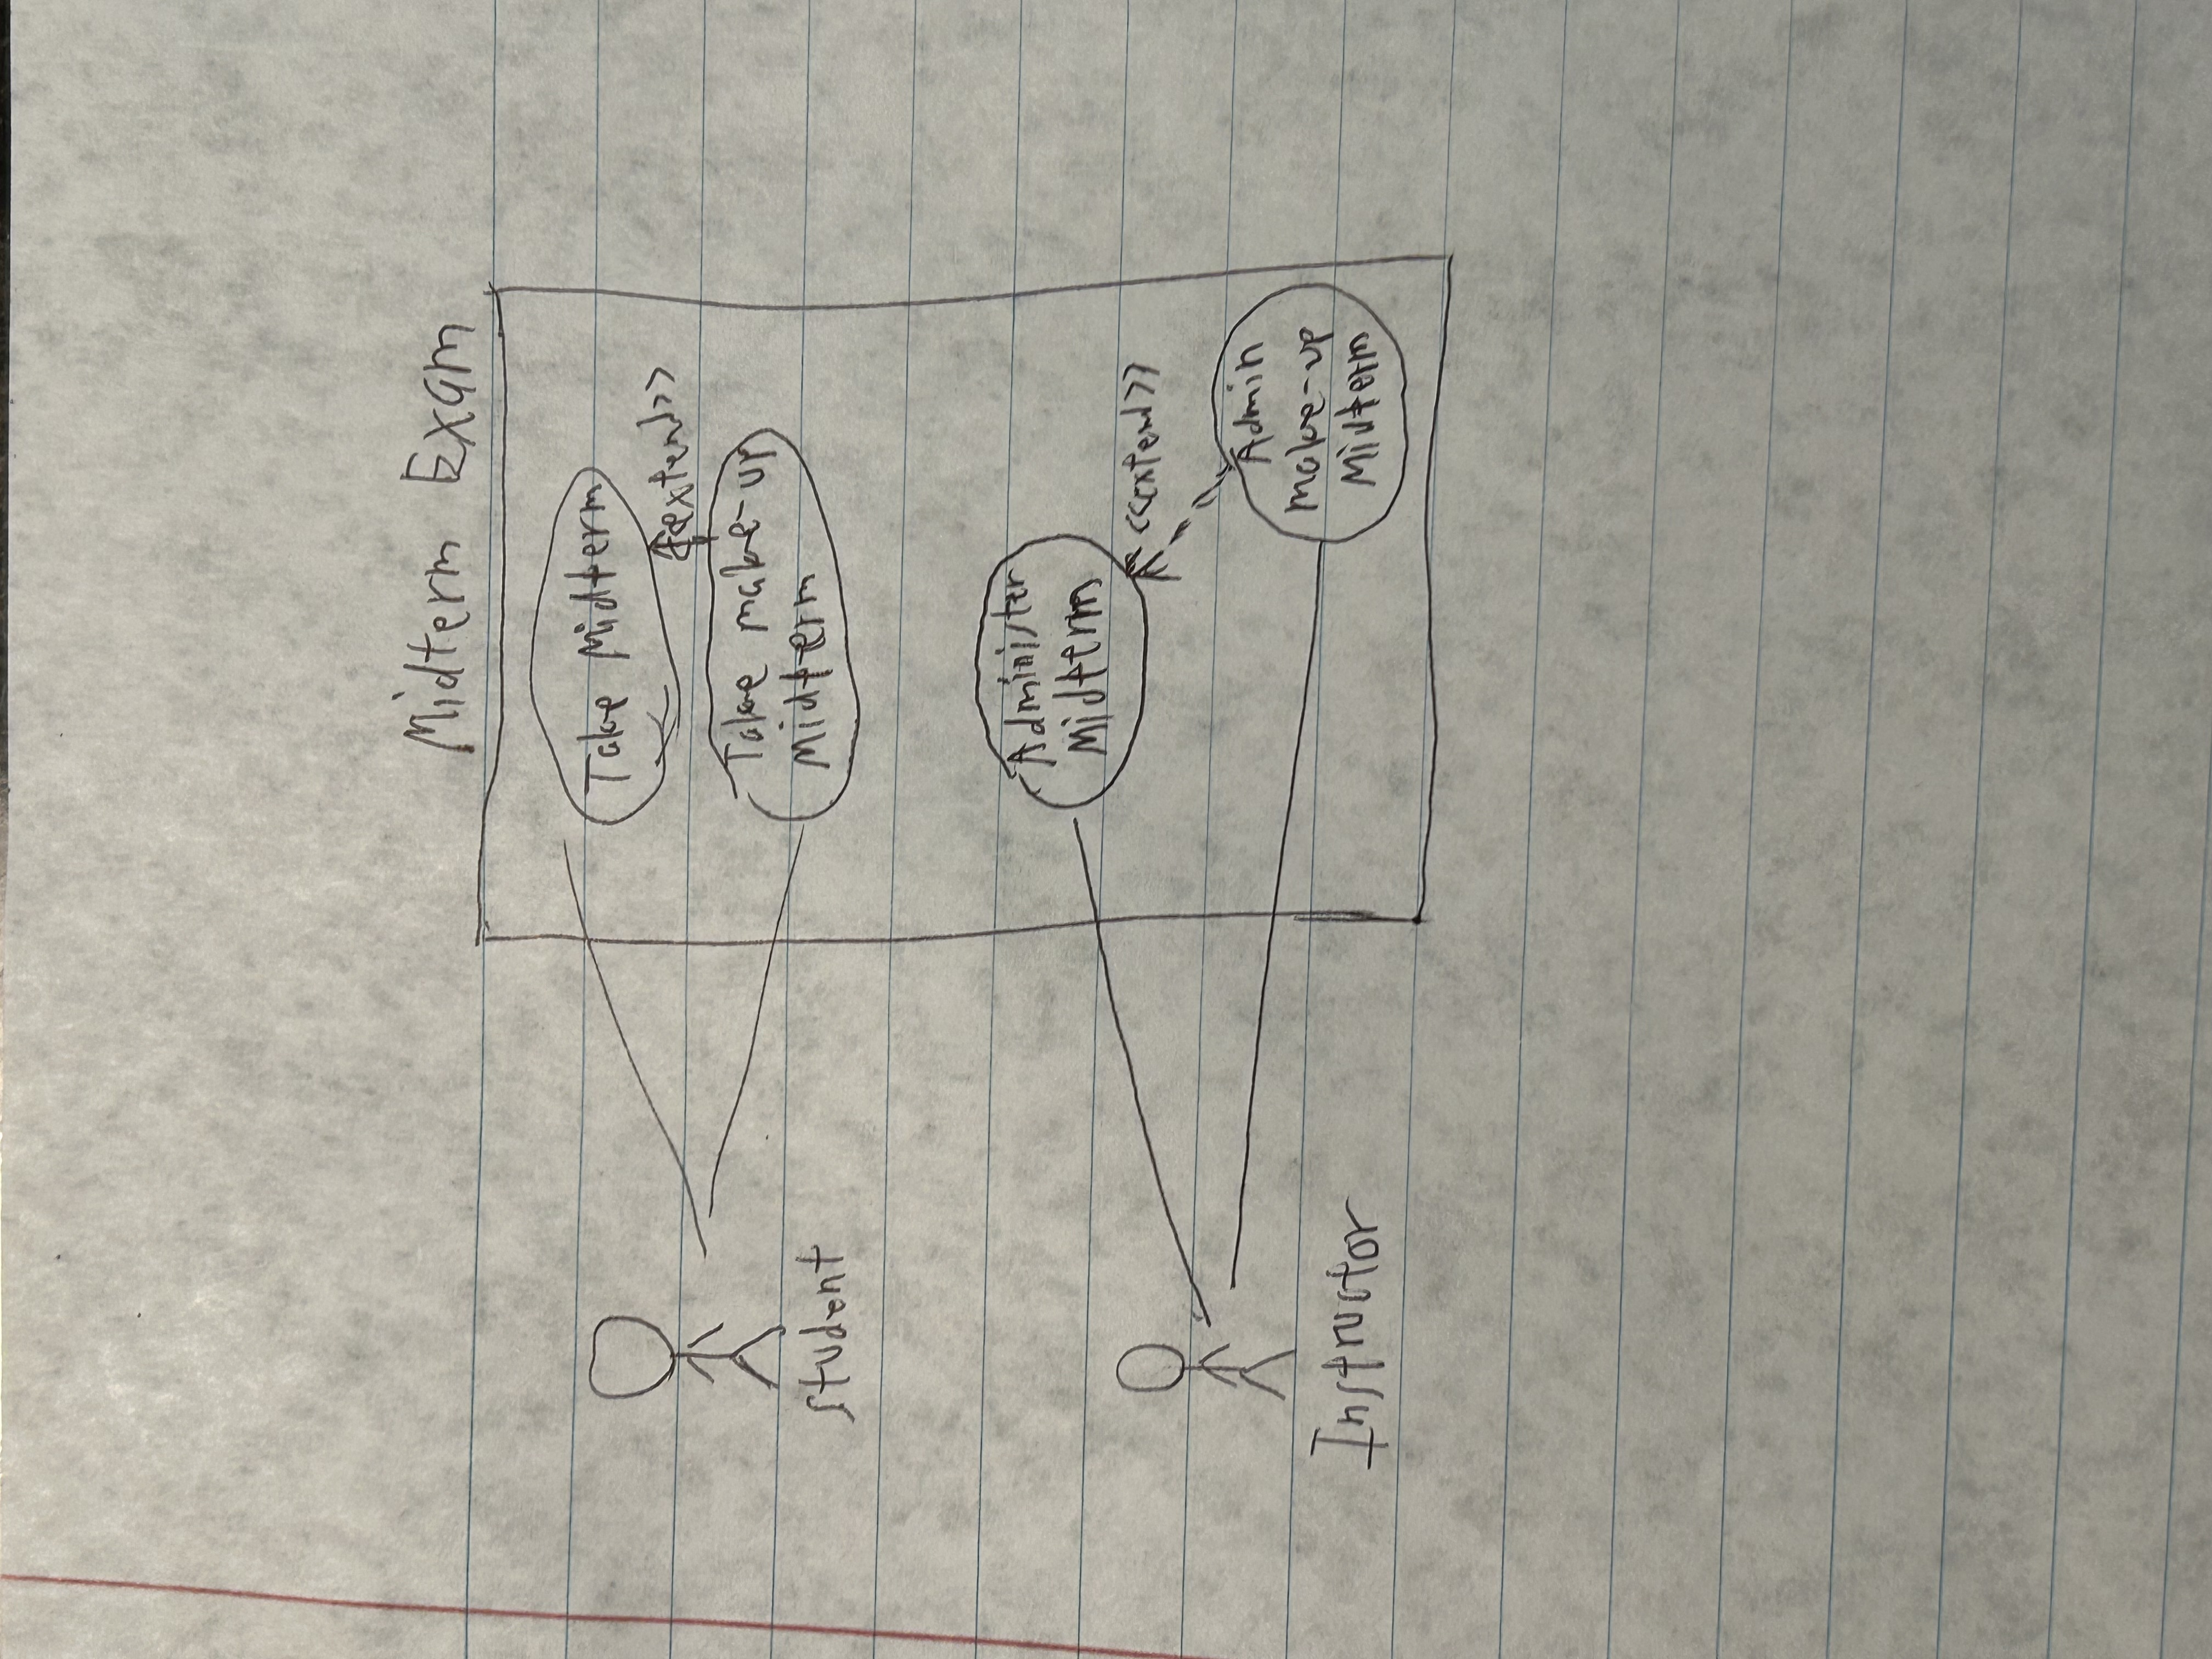 Midterm Exam
Take Midterm
<<extend>>
Take make-up
Midterm
student
Administer
Midterm
<<extend>>
Admin
make-up
Midterm
Instructor